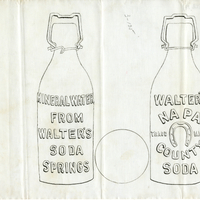 MINERAL WATER
FROM
WALTER'S
SODA
SPRINGS
WALTER'S
NAPA
TRADE MA
COUNTY
SODA